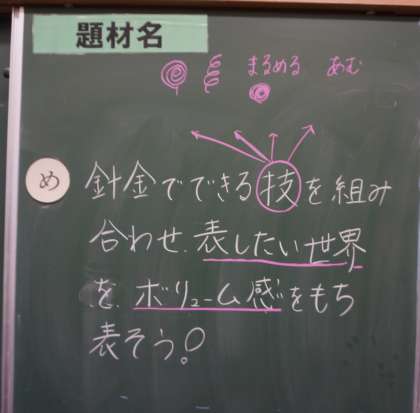 題材名
まるめる あむ
め 針金でできる技を組み
合わせ、表したい世界
を、ボリューム感をもち
表そう。